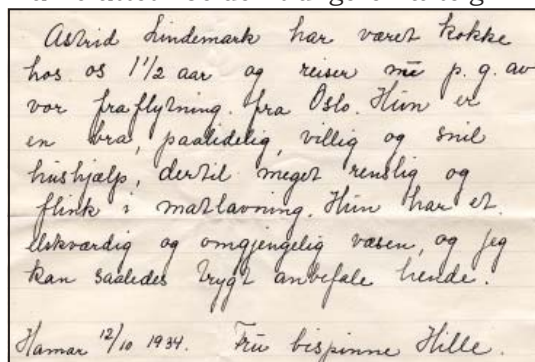 Astrid Lindemark har været kokke
hos os 1 1/2 aar og reiser nu p. g. av
vor fraflytning. fra Oslo. Hun er
en bra, paalidelig, villig og snil
hushjælp, dertil meget renslig og
flink i matlavning. Hun har et
elskværdig og omgjengelig væsen, og jeg
kan saaledes trygt anbefale hende.
Hamar 12/10 1934. Fru bispinne Hille.